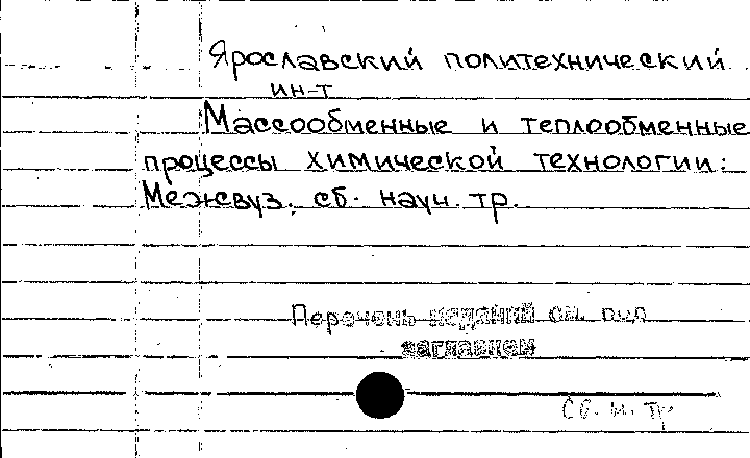 Ярославский политехнический
ин-т
Массообменные и теплообменные
процессы химической технологии:
Межвуз. сб. науч. тр.
Перечень изданий см. под
заглавием
Сб. н. тр.